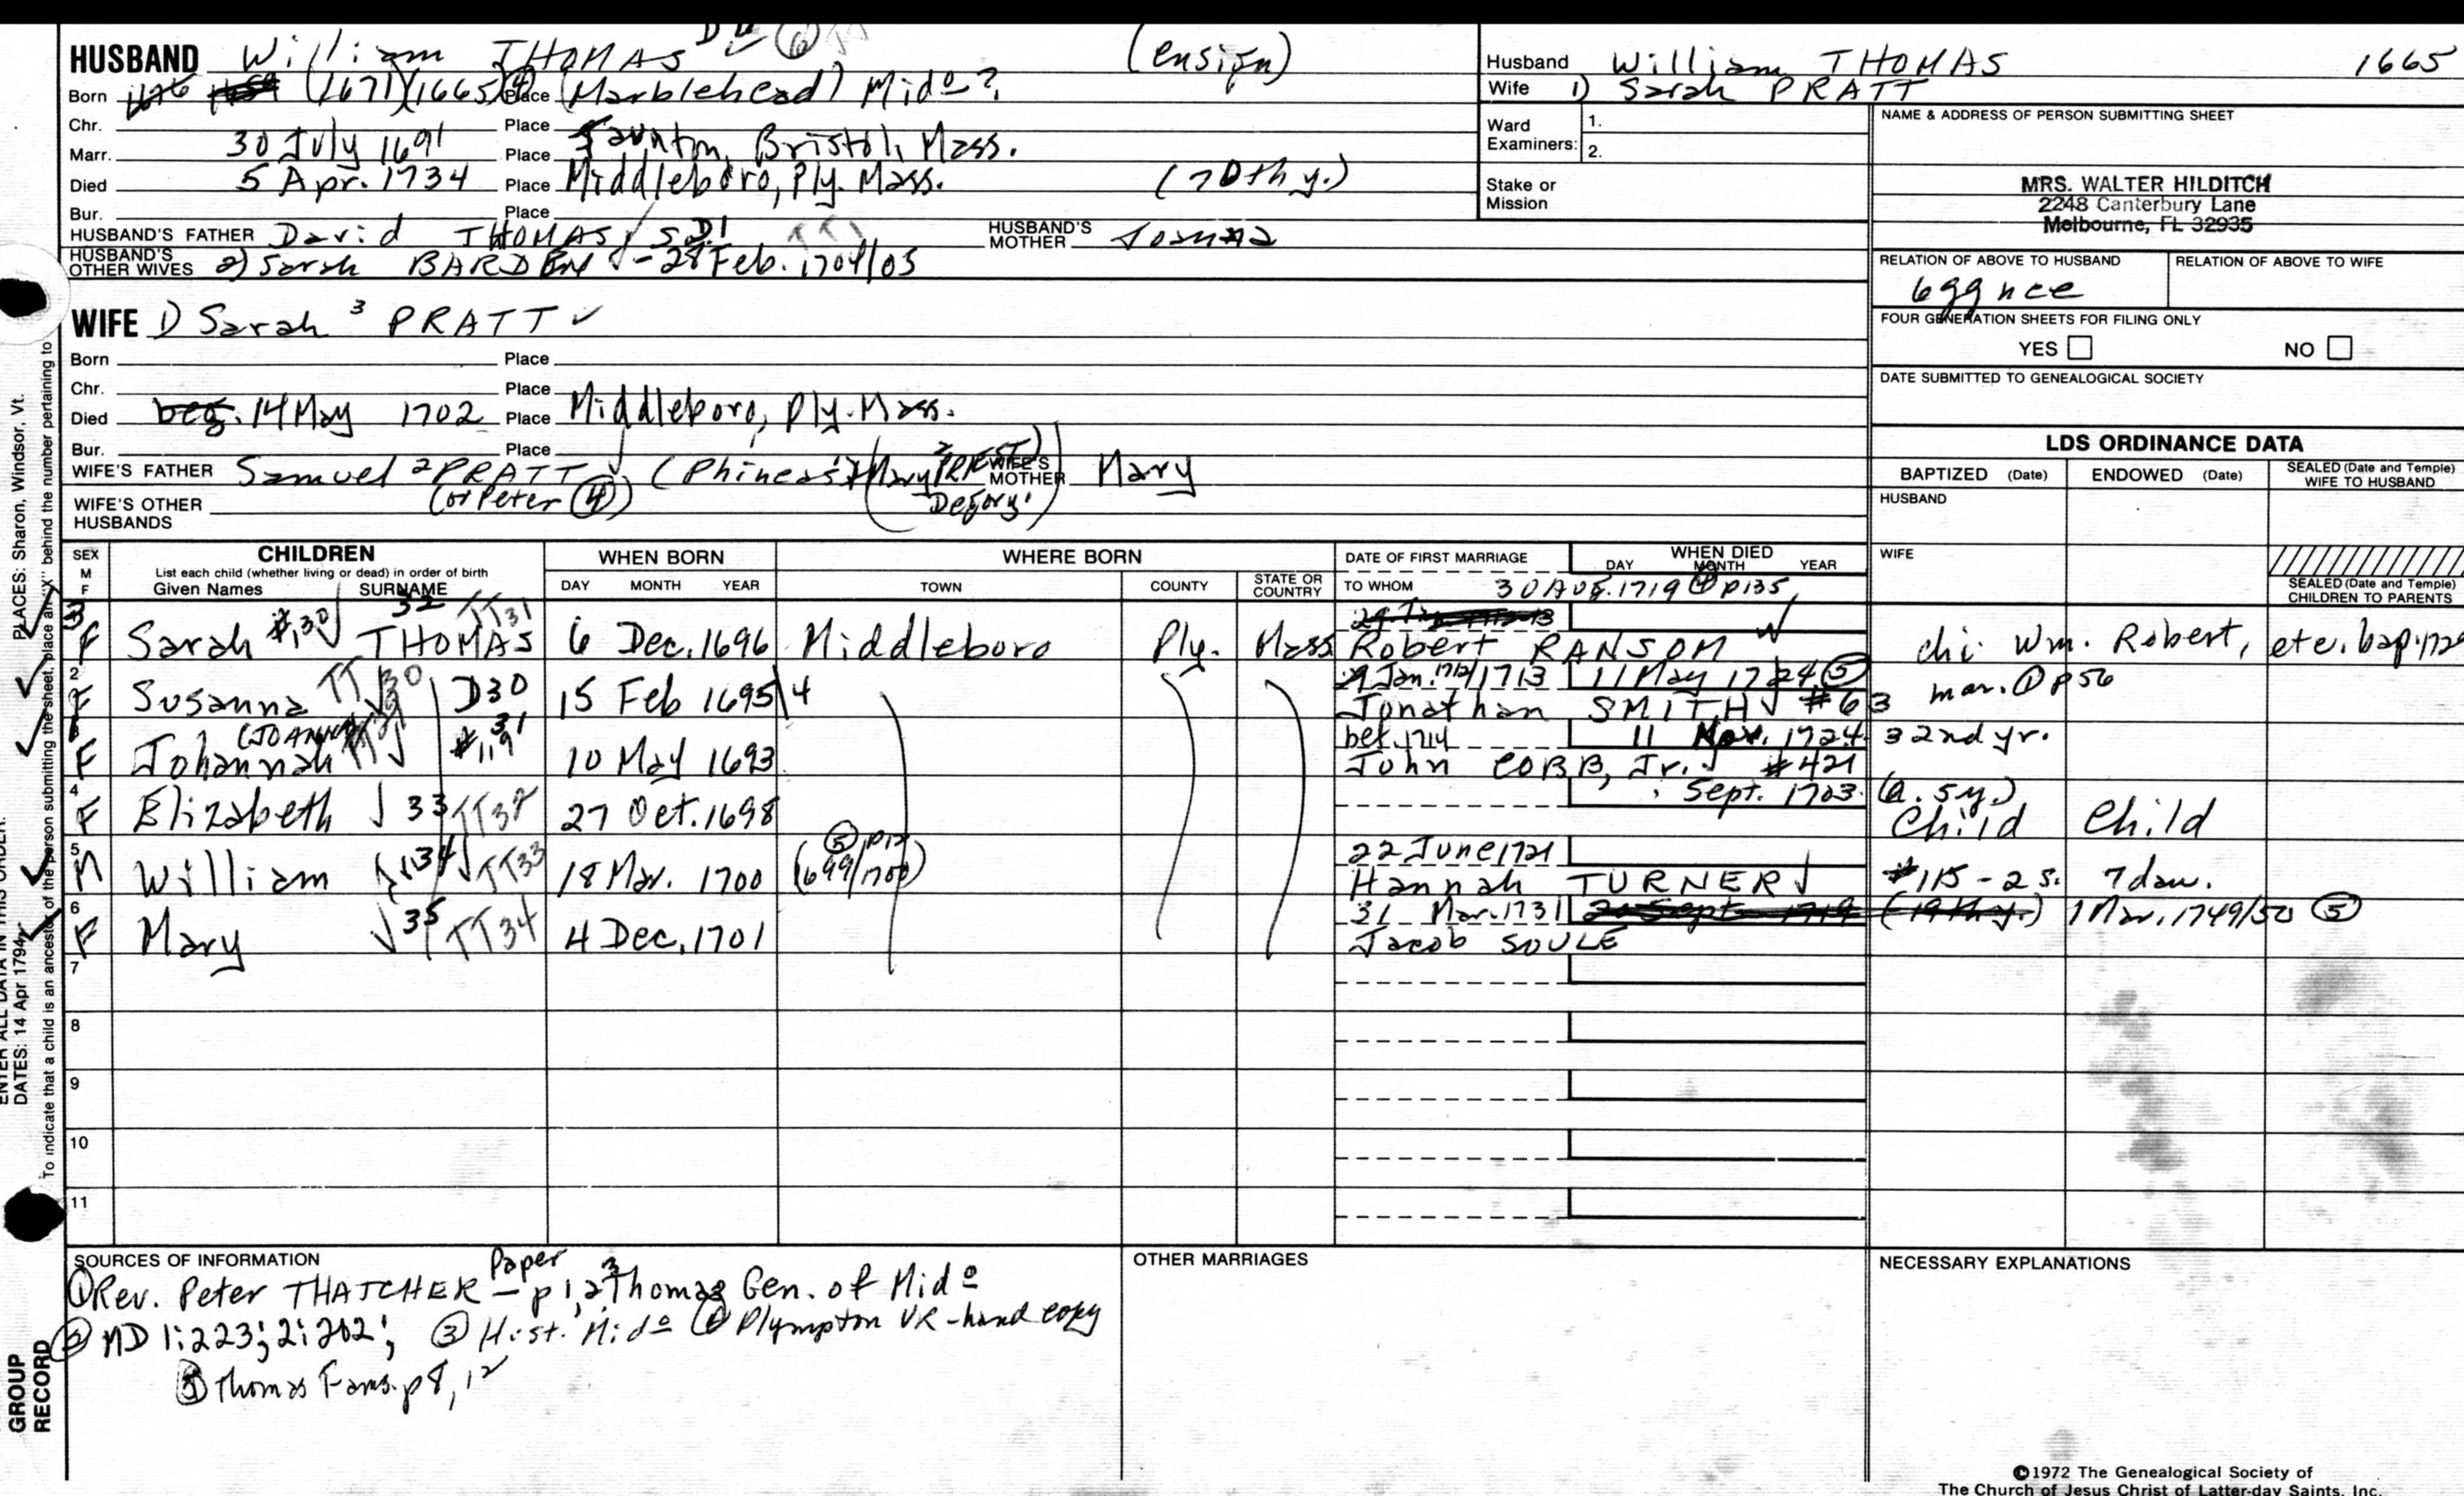 HUSBAND William THOMAS (ensign)
Born (1671)(1665) Place (Marblehead) Mido?
Chr. Place
Marr. 30 July 1691 Place Taunton, Bristol, Mass.
Died 5 Apr. 1734 Place Middleboro, Ply. Mass. (70th y.)
Bur. Place
HUSBAND'S FATHER David THOMAS, HUSBAND'S MOTHER Joanna
HUSBAND'S OTHER WIVES 2) Sarah BARDEN - 28 Feb. 1704/05
Husband William THOMAS 1665
Wife 1) Sarah PRATT
Ward Examiners: 1.
2.
Stake or Mission
NAME & ADDRESS OF PERSON SUBMITTING SHEET
MRS. WALTER HILDITCH
2248 Canterbury Lane
Melbourne, FL 32935
RELATION OF ABOVE TO HUSBAND RELATION OF ABOVE TO WIFE
6ggnce
FOUR GENERATION SHEETS FOR FILING ONLY
YES NO
DATE SUBMITTED TO GENEALOGICAL SOCIETY
WIFE 1) Sarah 3 PRATT ✓
Born Place
Chr. Place
Died beg. 14 May 1702 Place Middleboro, Ply. Mass.
Bur. Place
WIFE'S FATHER Samuel 2 PRATT (Phineas WIFE'S MOTHER Mary
(or Peter ④) Degory
WIFE'S OTHER HUSBANDS
LDS ORDINANCE DATA
BAPTIZED (Date) ENDOWED (Date) SEALED (Date and Temple) WIFE TO HUSBAND
HUSBAND
WIFE
SEALED (Date and Temple) CHILDREN TO PARENTS
SEX M F CHILDREN WHEN BORN WHERE BORN DATE OF FIRST MARRIAGE WHEN DIED
List each child (whether living or dead) in order of birth
Given Names SURNAME DAY MONTH YEAR TOWN COUNTY STATE OR COUNTRY TO WHOM DAY MONTH YEAR
30 Aug. 1719 p135
3 F Sarah #130 32 TT31 THOMAS 6 Dec. 1696 Middleboro Ply. Mass Robert RANSOM chi. Wm. Robert, etc. bap.
2 F Susanna TT30 D30 15 Feb 1695/4 29 Jan. 1712/1713 11 May 1724 ⑤ mar. ① p56
Jonathan SMITH #63
F Johannah (JOANNA) 31 #119 10 May 1693 bef. 1714 11 Nov. 1724 32nd yr.
John COBB, Jr. #421
4 F Elizabeth 33 TT32 27 Oct. 1698 Sept. 1703 (a. 5y.)
Child Child
5 M William 34 TT33 18 Mar. 1700 (1699/1700) ⑤ p12 22 June 1721
Hannah TURNER #115 - 2 s. 7 dau.
6 F Mary 35 TT34 4 Dec. 1701 31 Mar. 1731 20 Sept 1719 (19th y.) 1 Mar. 1749/50 ⑤
Jacob SOULE
7
8
9
10
11
SOURCES OF INFORMATION
① Rev. Peter THATCHER Paper - p 1, 2, 3 Thomas Gen. of Mido
② MD 1:223; 2:202; ③ Hist. Mido ④ Plympton VR - hand copy
⑤ Thomas Fams. p 8, 12
OTHER MARRIAGES
NECESSARY EXPLANATIONS
©1972 The Genealogical Society of
The Church of Jesus Christ of Latter-day Saints, Inc.
PLACES: Sharon, Windsor, Vt.
ENTER ALL DATA IN THIS ORDER:
DATES: 14 Apr 1794
To indicate that a child is an ancestor of the person submitting the sheet, place an "X" behind the number pertaining to
GROUP
RECORD